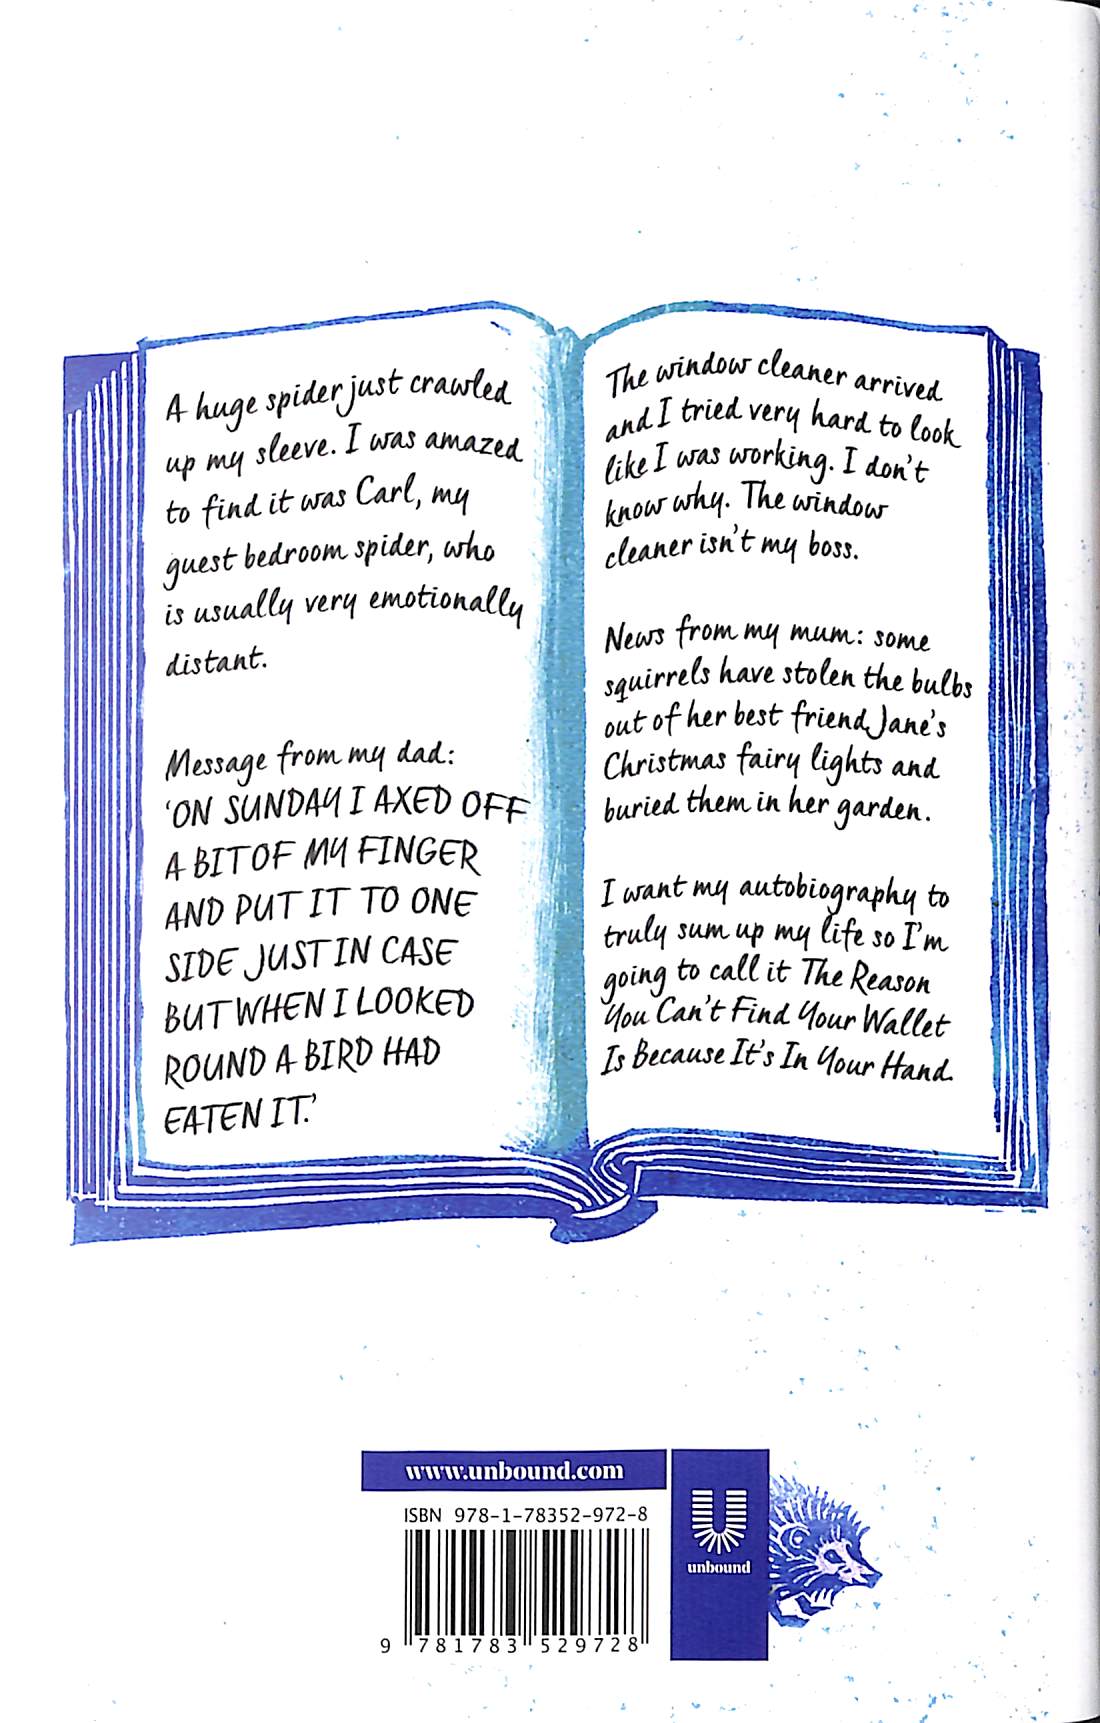 A huge spider just crawled
up my sleeve. I was amazed
to find it was Carl, my
guest bedroom spider, who
is usually very emotionally
distant.
Message from my dad:
‘ON SUNDAY I AXED OFF
A BIT OF MY FINGER
AND PUT IT TO ONE
SIDE JUST IN CASE
BUT WHEN I LOOKED
ROUND A BIRD HAD
EATEN IT.’
The window cleaner arrived
and I tried very hard to look
like I was working. I don’t
know why. The window
cleaner isn’t my boss.
News from my mum: some
squirrels have stolen the bulbs
out of her best friend Jane’s
Christmas fairy lights and
buried them in her garden.
I want my autobiography to
truly sum up my life so I’m
going to call it The Reason
You Can’t Find Your Wallet
Is Because It’s In Your Hand.
www.unbound.com
ISBN 978-1-78352-972-8
9 781783 529728
unbound